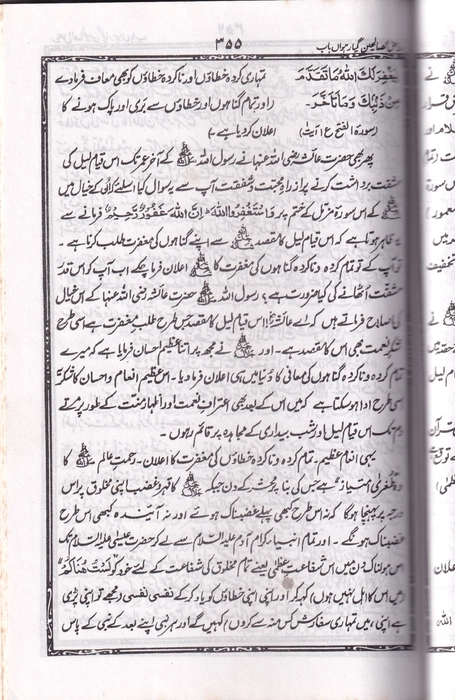 ۳۵۵
گیارہواں باب
لِيَغْفِرَ لَكَ اللّٰهُ مَا تَقَدَّمَ تمہاری کردہ خطاؤں اور ناکردہ خطاؤں کو بھی معاف فرمادے
مِنْ ذَنْبِكَ وَمَا تَأَخَّرَ۔ (اور تمام گناہوں اور خطاؤں سے بری اور پاک ہونے کا
(سورة الفتح ع ۱ آیت) اعلان کر دیا ہے۔)
پھر بھی حضرت عائشہ رضی اللہ عنہا نے رسول اللہ ﷺ کے آخر عمر تک اس قیام لیل کی
مشقت برداشت کرنے پر از راہِ محبت و شفقت آپ سے یہ سوال کیا اسلئے کہ ان کے خیال میں
کے اس سورۃ مزمل کے ختم پر وَاسْتَغْفِرُوا اللّٰهَ اِنَّ اللّٰهَ غَفُوْرٌ رَّحِيْمٌ فرمانے سے
یہ ظاہر ہوتا ہے کہ اس قیام لیل کا مقصد سے اپنے گناہوں کی مغفرت طلب کرنا ہے۔
تو آپ کے تو تمام کردہ و ناکردہ گناہوں کی مغفرت کا اعلان فرما چکے اب آپ کو اس قدر
مشقت اٹھانے کی کیا ضرورت ہے؟ رسول اللہ ﷺ حضرت عائشہ رضی اللہ عنہا کے اس خیال
کی اصلاح فرماتے ہیں کہ اے عائشہ! اس قیام لیل کا مقصد جس طرح طلب مغفرت ہے اسی طرح
شکرِ نعمت بھی اس کا مقصد ہے۔ اور نے مجھ پر اتنا عظیم احسان فرمایا ہے کہ میرے
تمام کردہ و ناکردہ گناہوں کی معافی کا دنیا میں ہی اعلان فرما دیا۔ اس عظیم انعام و احسان کا شکریہ
اسی طرح ادا ہو سکتا ہے کہ میں اس کے بعد بھی اعترافِ نعمت اور اظہارِ منت کے طور پر مرتے
دم تک اس قیام لیل اور شب بیداری کے مجاہدہ پر قائم رہوں۔
یہی انعام عظیم۔ تمام کردہ و ناکردہ خطاؤں کی مغفرت کا اعلان۔ رحمت عالم ﷺ کا
وہ طغرائی امتیاز ہے جس کی بنا پر محشر کے دن جبکہ کا قہر و غضب اپنی مخلوق پر اس
درجہ پر پہنچا ہوگا کہ نہ اس طرح کبھی پہلے غضبناک ہوئے اور نہ آئیندہ کبھی اس طرح
غضبناک ہونگے۔ اور تمام انبیاء کرام آدم علیہ السلام سے لے کر حضرت عیسیٰ علیہ السلام تک
اس ہولناک دن میں اس شفاعت عظمیٰ یعنی تمام مخلوق کی شفاعت کے لیئے خود کو لَسْتُ هُنَاكُمْ
(میں اس کا اہل نہیں ہوں) کہہ کر اور اپنی اپنی خطاؤں کو یاد کر کے نفسی نفسی (مجھے تو اپنی پڑی
ہے اپنی، میں تمہاری سفارش کس منہ سے کروں) کہیں گے اور ہر نبی اپنے بعد کے نبی کے پاس